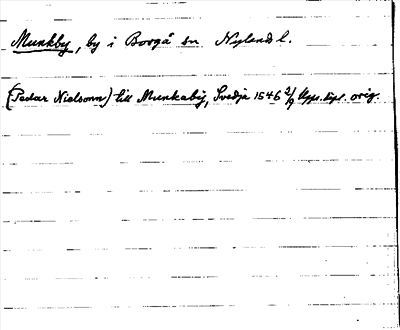 Munkby, by i Borgå sn Nylands l.
(Pedar Nielsonn) till Munkaby, Svedja 1546 2/9 Upps. dipl. orig.